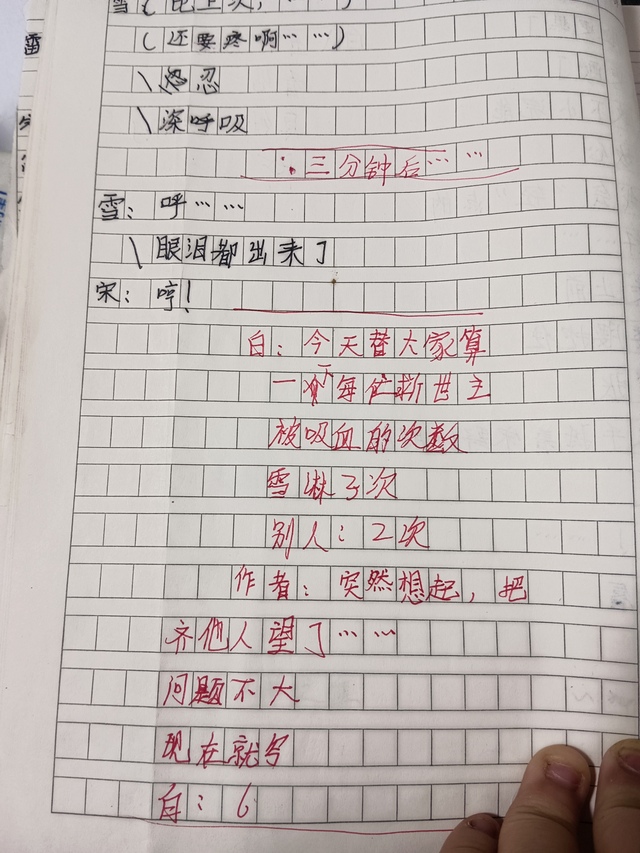 (还要疼啊……)
\忍
\深呼吸
∵三分钟后……
雪：呼……
\眼泪都出来了
宋：哼！
白：今天替大家算
一下每位斩世主
被吸血的次数
雪淋3次
别人：2次
作者：突然想起，把
齐他人望了……
问题不大
现在就写
白：6